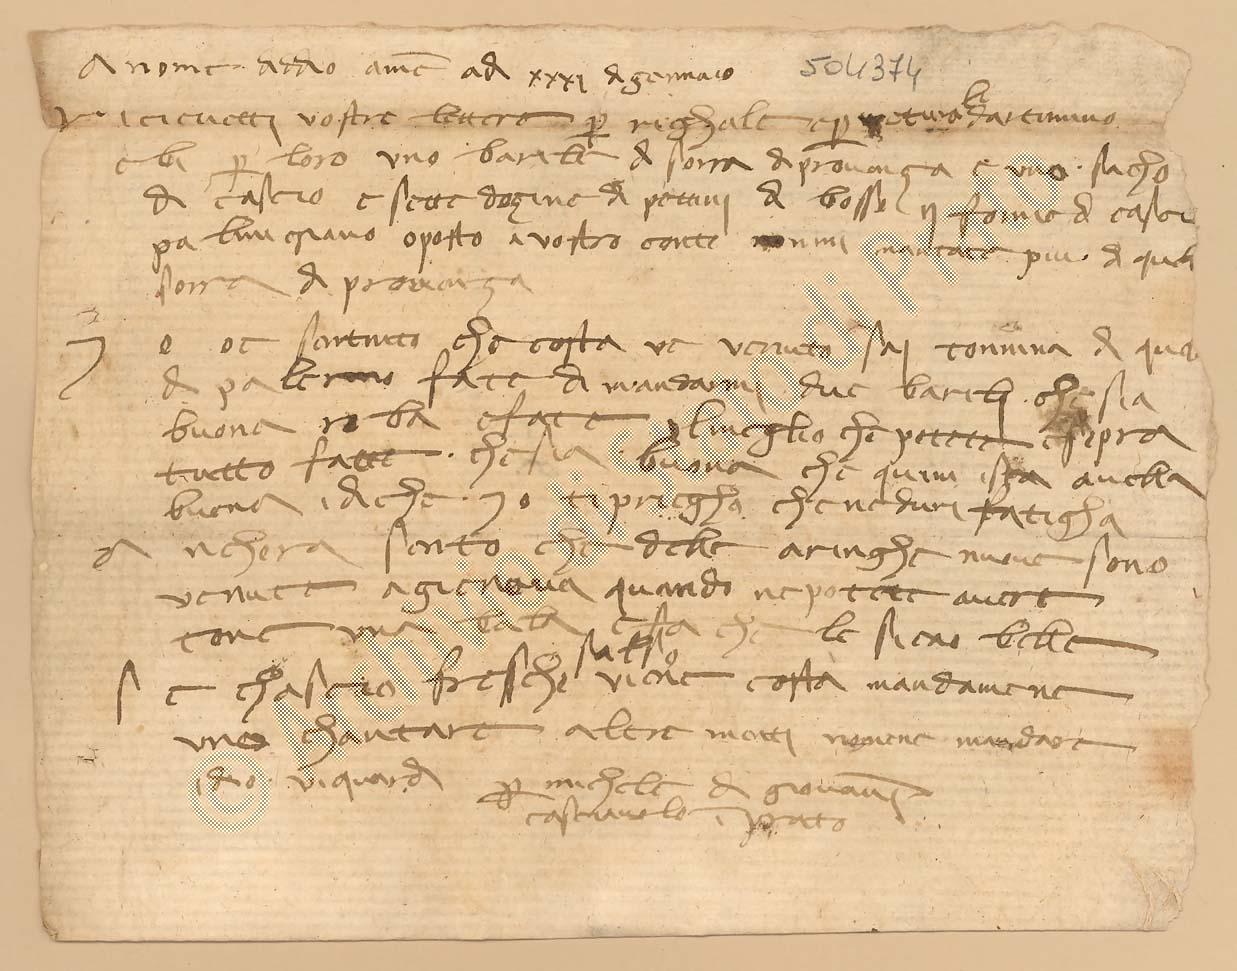 A nome addio ame ad xxxi di gennaio 504374
Ricievetti vostre lettere p righale e p le dartimino
ebi p loro uno barile di sorra di provenza e uno sacho
di cascio e sette dozine di pettini di bosso ij forme di casci
opossto a vostro conte nonmi mandate piu di quel
sorra di provenza
Io o sentuto che costa ve venuto tonnina di que
di palermo fate di mandarmi due barili che sia
buona roba e fate che potete e sopra
tutto fatte che sia buona che quini ista avella
buona idiche io ti priegho che neduri fatigha
Anchora sento che delle aringhe nuove sono
venute a gienova quando ne potete avere
tone una bala e fa che le sieno belle
Se chascio fresche salso viene costa mandamene
uno chantare altre motti nomene mandare
idio vi guardi p michele di giovani
in prato
© Archivio di Stato di Prato